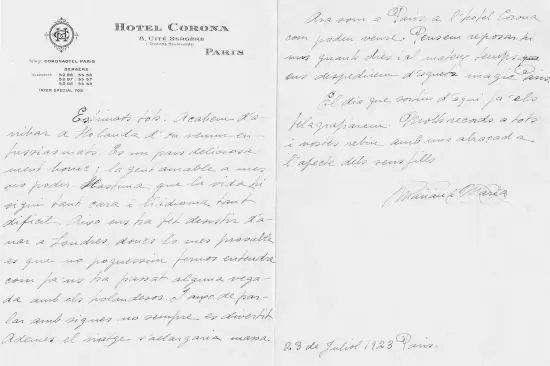 HOTEL CORONA
8, CITÉ BERGÈRE
GRANDS BOULEVARDS
PARIS
TELEG: CORONAOTEL PARIS
BERGÈRE
INTER SPECIAL 706
Estimats tots. Acabem d'a-
rribar d'Holanda d'on venim en-
tussiasmats. Es un pais deliciosa-
ment bonic i la gent amable a mes
no poder. Llastima que la vida hi
sigui tant cara i l'idioma tant
dificil. Aixo ens ha fet desistir d'a-
nar a Londres, doncs lo mes provable
es que no poguessim fernos entendre
com ja ns ha passat alguna vega-
da amb els holandesos. I aixo de par-
lar amb signes no sempre es divertit
Ademes el viatge s'allargaria massa.
Ara som a Paris, a l'hotel Corona
com poden veure. Pensem reposar hi
uns quants dies i al mateix temps
ens despedirem d'aquest magic Paris.
El dia que sortim d'aqui ja els
telegrafiarem. Molts records a tots
i vostes rebin amb una abraçada
l'afecte dels seus fills
Maria
23 de Juliol 1923 Paris.